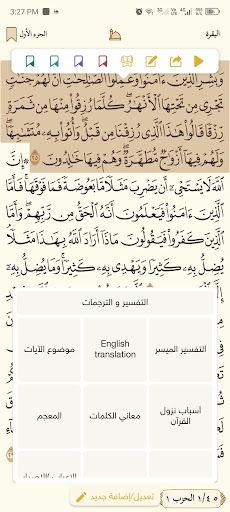 3:27 PM
البقرة
الجزء الأول
وَبَشِّرِ الَّذِينَ ءَامَنُوا وَعَمِلُوا الصَّالِحَاتِ أَنَّ لَهُمْ جَنَّاتٍ
تَجْرِى مِن تَحْتِهَا الْأَنْهَارُ كُلَّمَا رُزِقُوا مِنْهَا مِن ثَمَرَةٍ
رِّزْقًا قَالُوا هَٰذَا الَّذِى رُزِقْنَا مِن قَبْلُ وَأُتُوا بِهِ مُتَشَابِهًا
وَلَهُمْ فِيهَا أَزْوَاجٌ مُّطَهَّرَةٌ وَهُمْ فِيهَا خَالِدُونَ ٢٥ إِنَّ
اللَّهَ لَا يَسْتَحْىِۦٓ أَن يَضْرِبَ مَثَلًا مَّا بَعُوضَةً فَمَا فَوْقَهَا فَأَمَّا
الَّذِينَ ءَامَنُوا فَيَعْلَمُونَ أَنَّهُ الْحَقُّ مِن رَّبِّهِمْ وَأَمَّا
الَّذِينَ كَفَرُوا فَيَقُولُونَ مَاذَا أَرَادَ اللَّهُ بِهَٰذَا مَثَلًا
يُضِلُّ بِهِ كَثِيرًا وَيَهْدِى بِهِ كَثِيرًا وَمَا يُضِلُّ بِهِ
التفسير و الترجمات
التفسير الميسر
English translation
موضوع الآيات
أسباب نزول القرآن
معاني الكلمات
المعجم
٤٥ /١ الحزب ١
تعديل/إضافة جديد